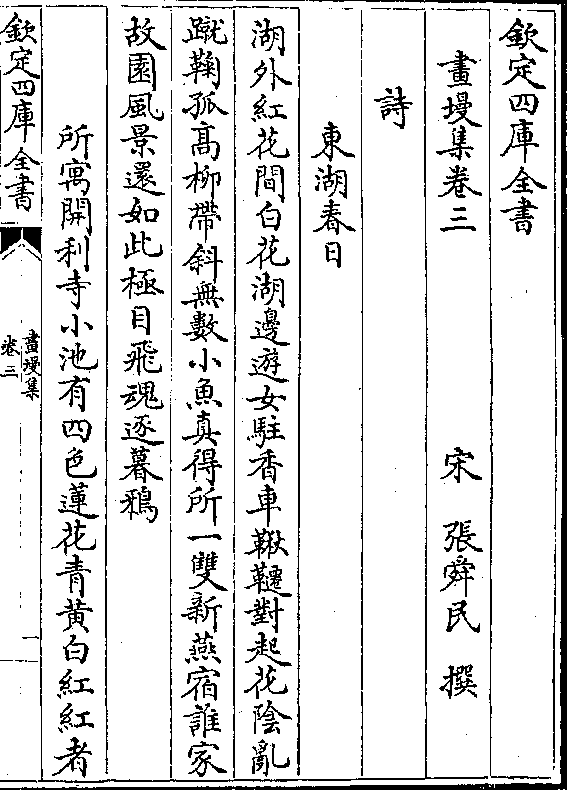 欽定四庫全書
畫墁集卷三
宋 張舜民 撰
詩
東湖春日
湖外紅花間白花湖邊遊女駐香車鞦韆對起花陰亂
蹴鞠孤高柳帶斜無數小魚真得所一雙新燕宿誰家
故園風景還如此極目飛魂逐暮鴉
所寓開利寺小池有四色蓮花青黃白紅紅者
欽定四庫全書
畫墁集
卷三
一